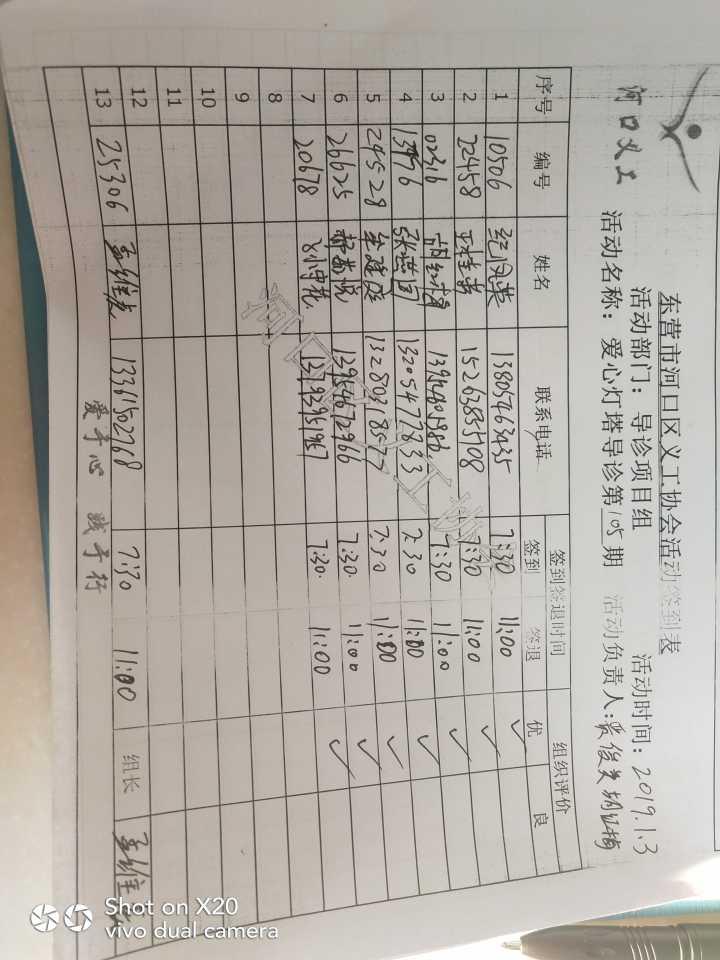 河口义工
东营市河口区义工协会活动签到表
活动部门：导诊项目组 活动时间：2019.1.3
活动名称：爱心灯塔导诊第105期 活动负责人：
序号 编号 姓名 联系电话 签到签退时间 组织评价
签到 签退 优 良
1 10506 纪风英 13805463435 7:30 11:00 ✓
2 22458 15263855108 7:30 11:00 ✓
3 02316 7:30 11:00 ✓
4 13476 张燕 13205477833 7:30 11:00 ✓
5 24528 13280318577 7:30 11:00 ✓
6 26625 13954672966 7:30 11:00 ✓
7 20678 7:30 11:00 ✓
8
9
10
11
12
13 25306 13361502768 7:30 11:00 组长
爱于心 践于行
河口区义工协
Shot on X20
vivo dual camera